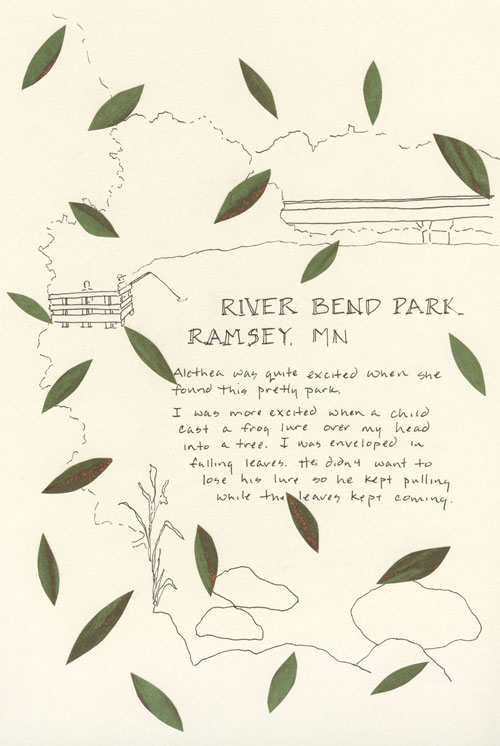 RIVER BEND PARK
RAMSEY, MN
Alethea was quite excited when she
found this pretty park.
I was more excited when a child
cast a frog lure over my head
into a tree. I was enveloped in
falling leaves. He didn't want to
lose his lure so he kept pulling
while the leaves kept coming.